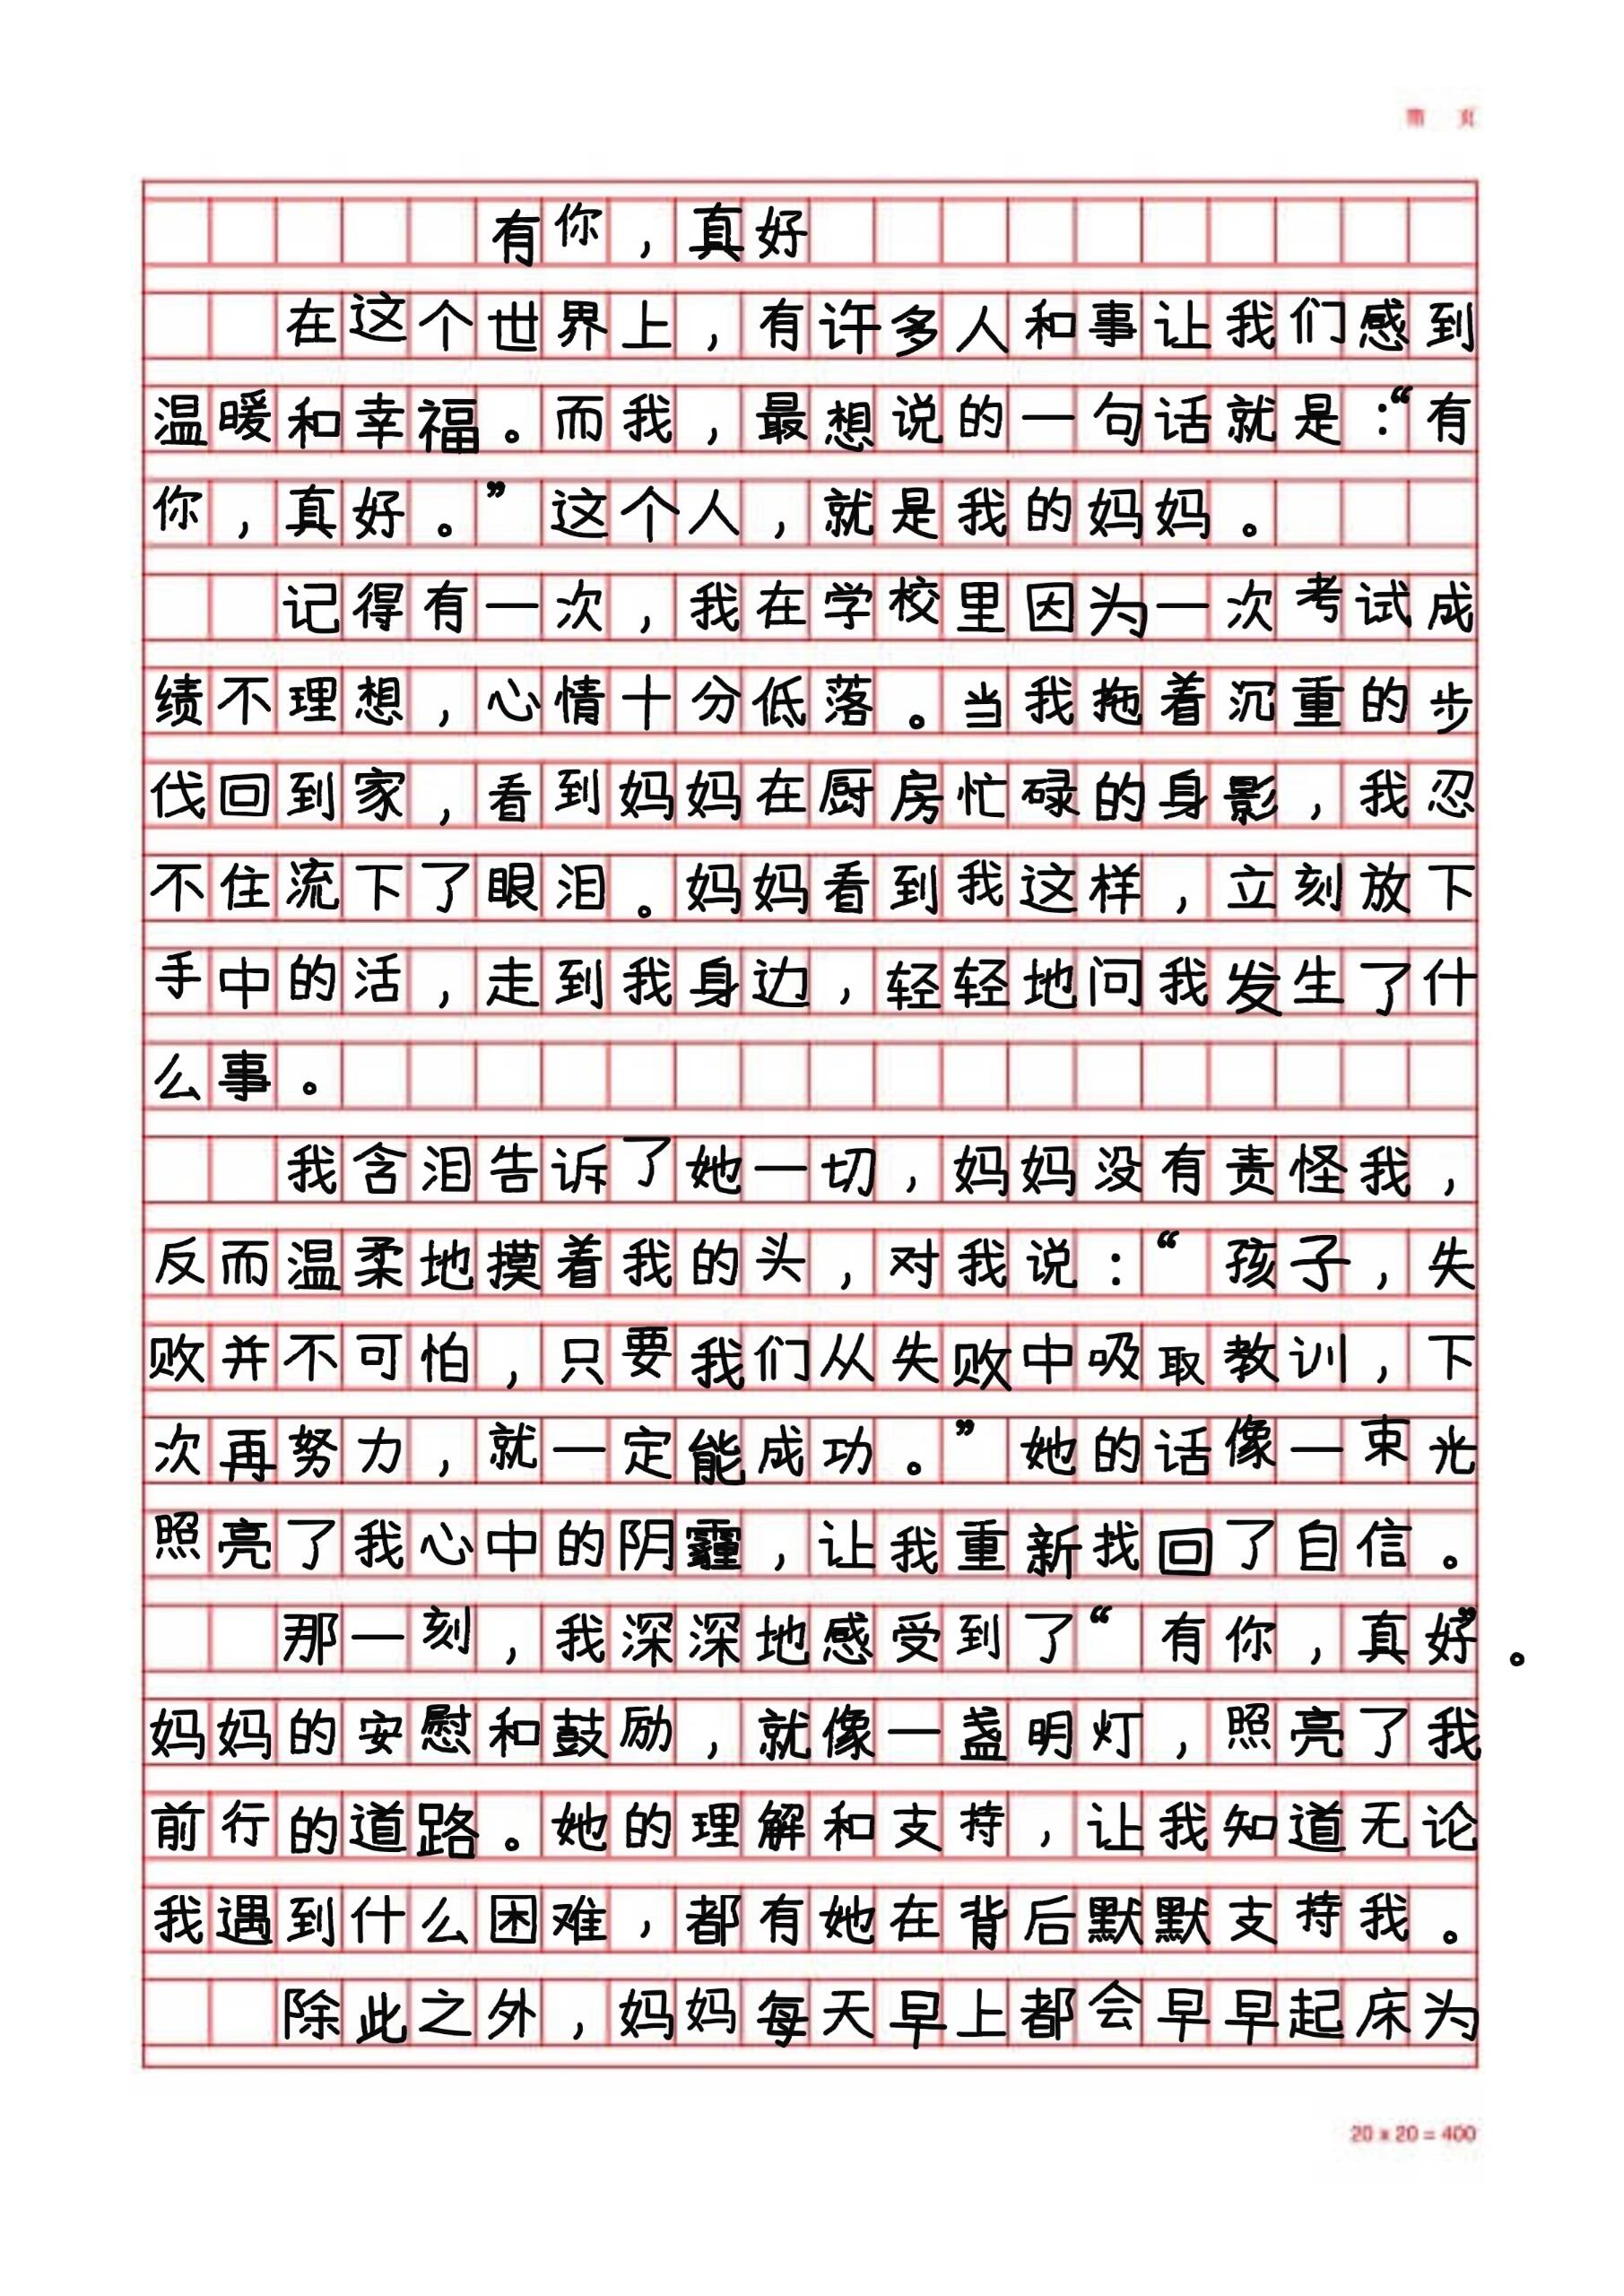 第 页
有你，真好
在这个世界上，有许多人和事让我们感到
温暖和幸福。而我，最想说的一句话就是：“有
你，真好。”这个人，就是我的妈妈。
记得有一次，我在学校里因为一次考试成
绩不理想，心情十分低落。当我拖着沉重的步
伐回到家，看到妈妈在厨房忙碌的身影，我忍
不住流下了眼泪。妈妈看到我这样，立刻放下
手中的活，走到我身边，轻轻地问我发生了什
么事。
我含泪告诉了她一切，妈妈没有责怪我，
反而温柔地摸着我的头，对我说：“孩子，失
败并不可怕，只要我们从失败中吸取教训，下
次再努力，就一定能成功。”她的话像一束光
照亮了我心中的阴霾，让我重新找回了自信。
那一刻，我深深地感受到了“有你，真好”。
妈妈的安慰和鼓励，就像一盏明灯，照亮了我
前行的道路。她的理解和支持，让我知道无论
我遇到什么困难，都有她在背后默默支持我。
除此之外，妈妈每天早上都会早早起床为
20 x 20 = 400